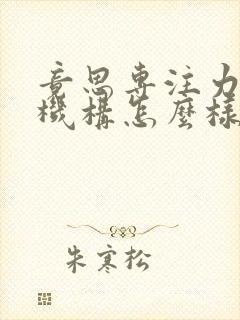 竟思專注力
機構怎麼樣
朱寒松